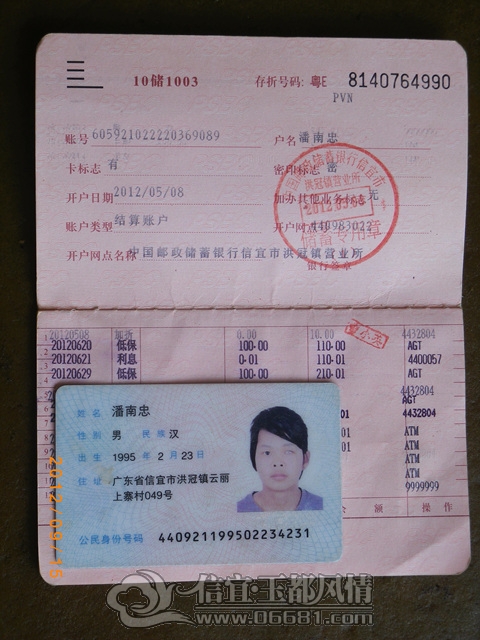 10储1003 存折号码: 粤E 8140764990
PVN
账号 605921022220369089 户名 潘南忠
卡标志 有 密印标志 密
开户日 2012/05/08 加办其他业务标志 无
账户类型 结算账户 开户网点 440983022
开户网点名称 中国邮政储蓄银行信宜市洪冠镇营业所
银行签章
中国邮政储蓄银行信宜市
洪冠镇营业所
储蓄专用章
20120508 0.00 10.00 4432804
20120620 低保 100.00 110.00 AGT
20120621 利息 0.01 110.01 4400057
20120629 低保 100.00 210.01 AGT
4432804
AGT
4432804
ATM
ATM
ATM
9999999
额 操作
姓名 潘南忠
性别 男 民族 汉
出生 1995 年 2 月 23 日
住址 广东省信宜市洪冠镇云丽
上寨村049号
公民身份号码 440921199502234231
2012/09/15
信宜·玉都风情
www.06681.com